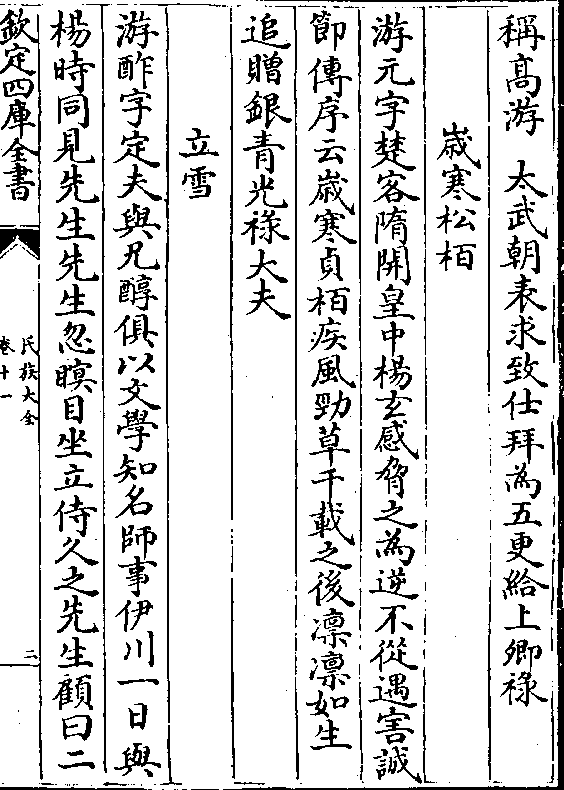 稱高游　太武朝表求致仕拜為五更給上卿祿
歳寒松栢
游元字楚客隋開皇中楊玄感脅之為逆不從遇害誠
節傳序云嵗寒貞栢疾風勁草千載之後凛凛如生
追贈銀青光祿大夫
立雪
游酢字定夫與兄醇俱以文學知名師事伊川一日與
楊時同見先生先生忽瞑目坐立侍久之先生顧曰二
欽定四庫全書
氏族大全
卷十一
二